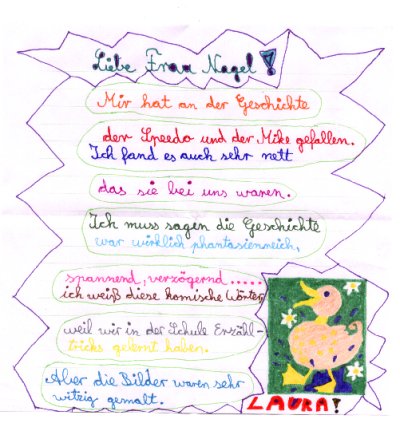 Liebe Frau Nagel!
Mir hat an der Geschichte
der Speedo und der Mike gefallen.
Ich fand es auch sehr nett
das sie bei uns waren.
Ich muss sagen die Geschichte
war wirklich phantasienreich,
spannend, verzögernd.....
ich weiß diese komische Wörter
weil wir in der Schule Erzähl-
tricks gelernt haben.
Aber die Bilder waren sehr
witzig gemalt.
LAURA!